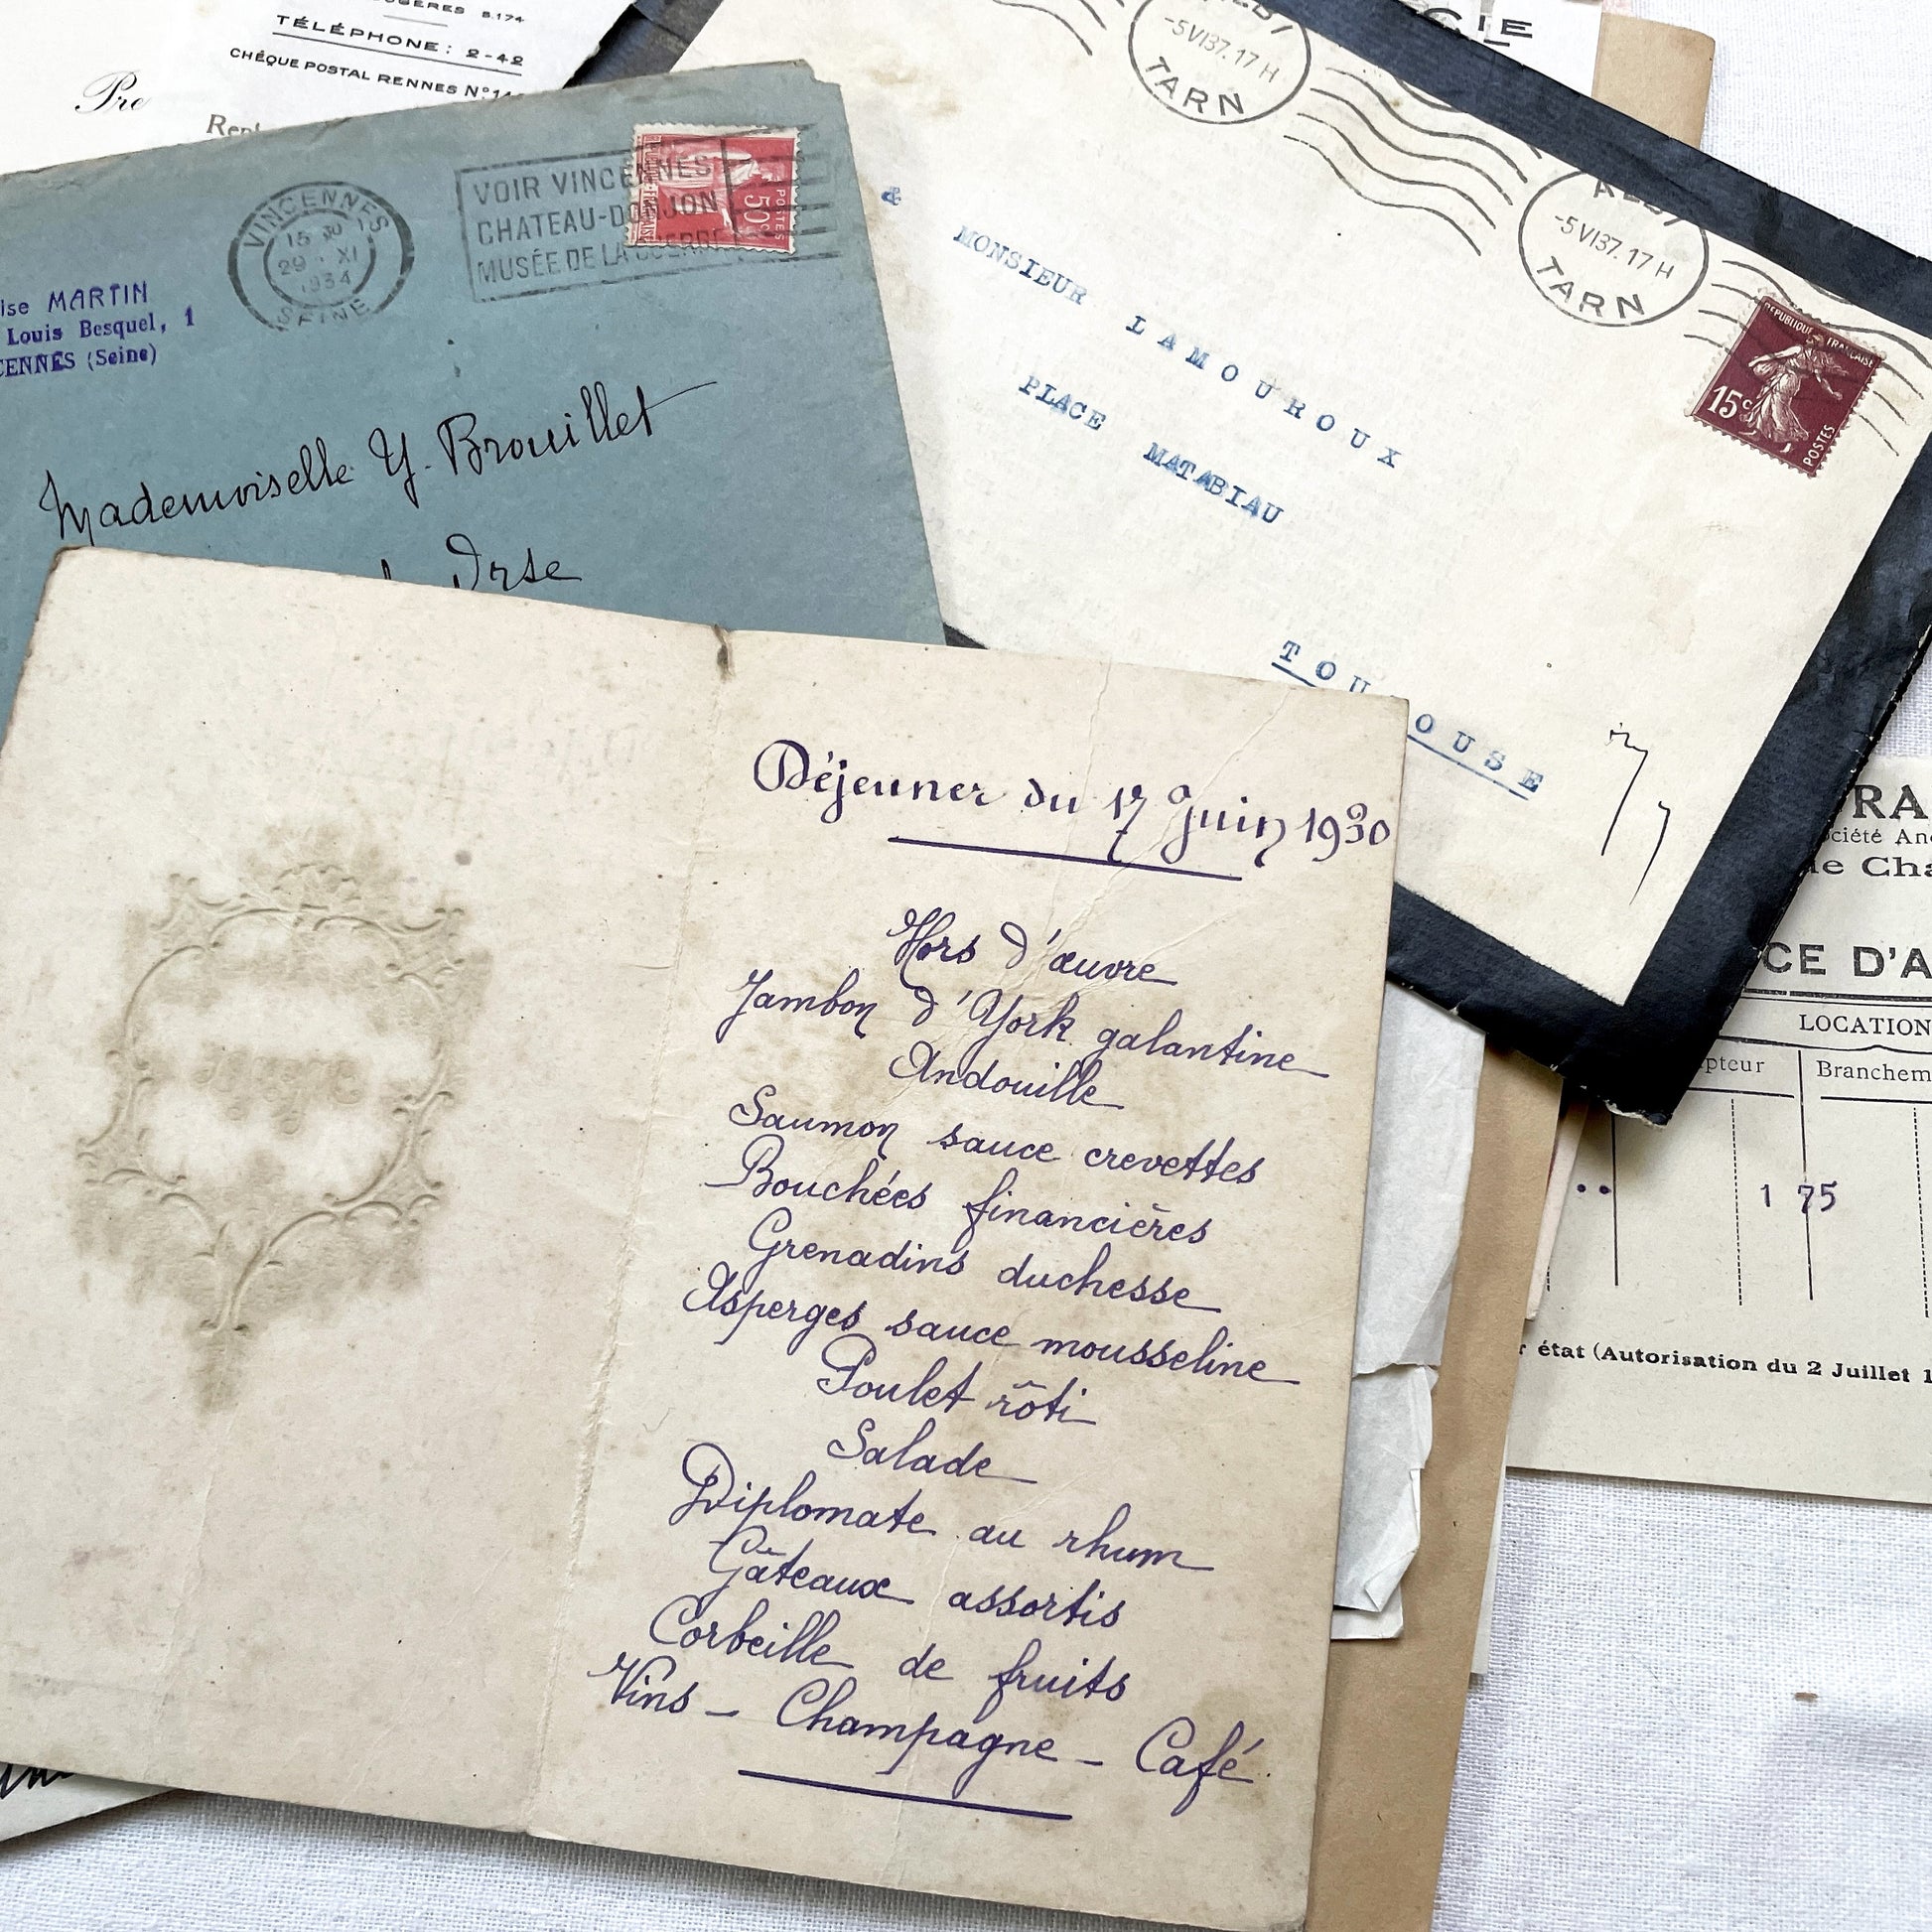 TÉLÉPHONE : 2-42
CHÉQUE POSTAL RENNES N°
Pre
VINCENNES
15 30
29 XI
1934
SEINE
VOIR VINCENNES
CHATEAU-DONJON
MUSÉE DE LA GUERRE
POSTES
50c
ise MARTIN
Louis Besquel, 1
CENNES (Seine)
Mademoiselle Y. Brouillet
TARN
-5 VI 37. 17 H
ALBI
-5 VI 37. 17 H
TARN
REPUBLIQUE FRANÇAISE
15c
POSTES
&
MONSIEUR LAMOUROUX
PLACE MATABIAU
TOU OUSE
Déjeuner du 17 Juin 1930
Hors d'œuvre
Jambon d'York galantine
Andouille
Saumon sauce crevettes
Bouchées financières
Grenadins duchesse
Asperges sauce mousseline
Poulet rôti
Salade
Diplomate au rhum
Gâteaux assortis
Corbeille de fruits
Vins - Champagne - Café
Menu
RA
ciété An
de Cha
CE D'A
LOCATION
pteur
Branchem
1 75
r état (Autorisation du 2 Juillet 1